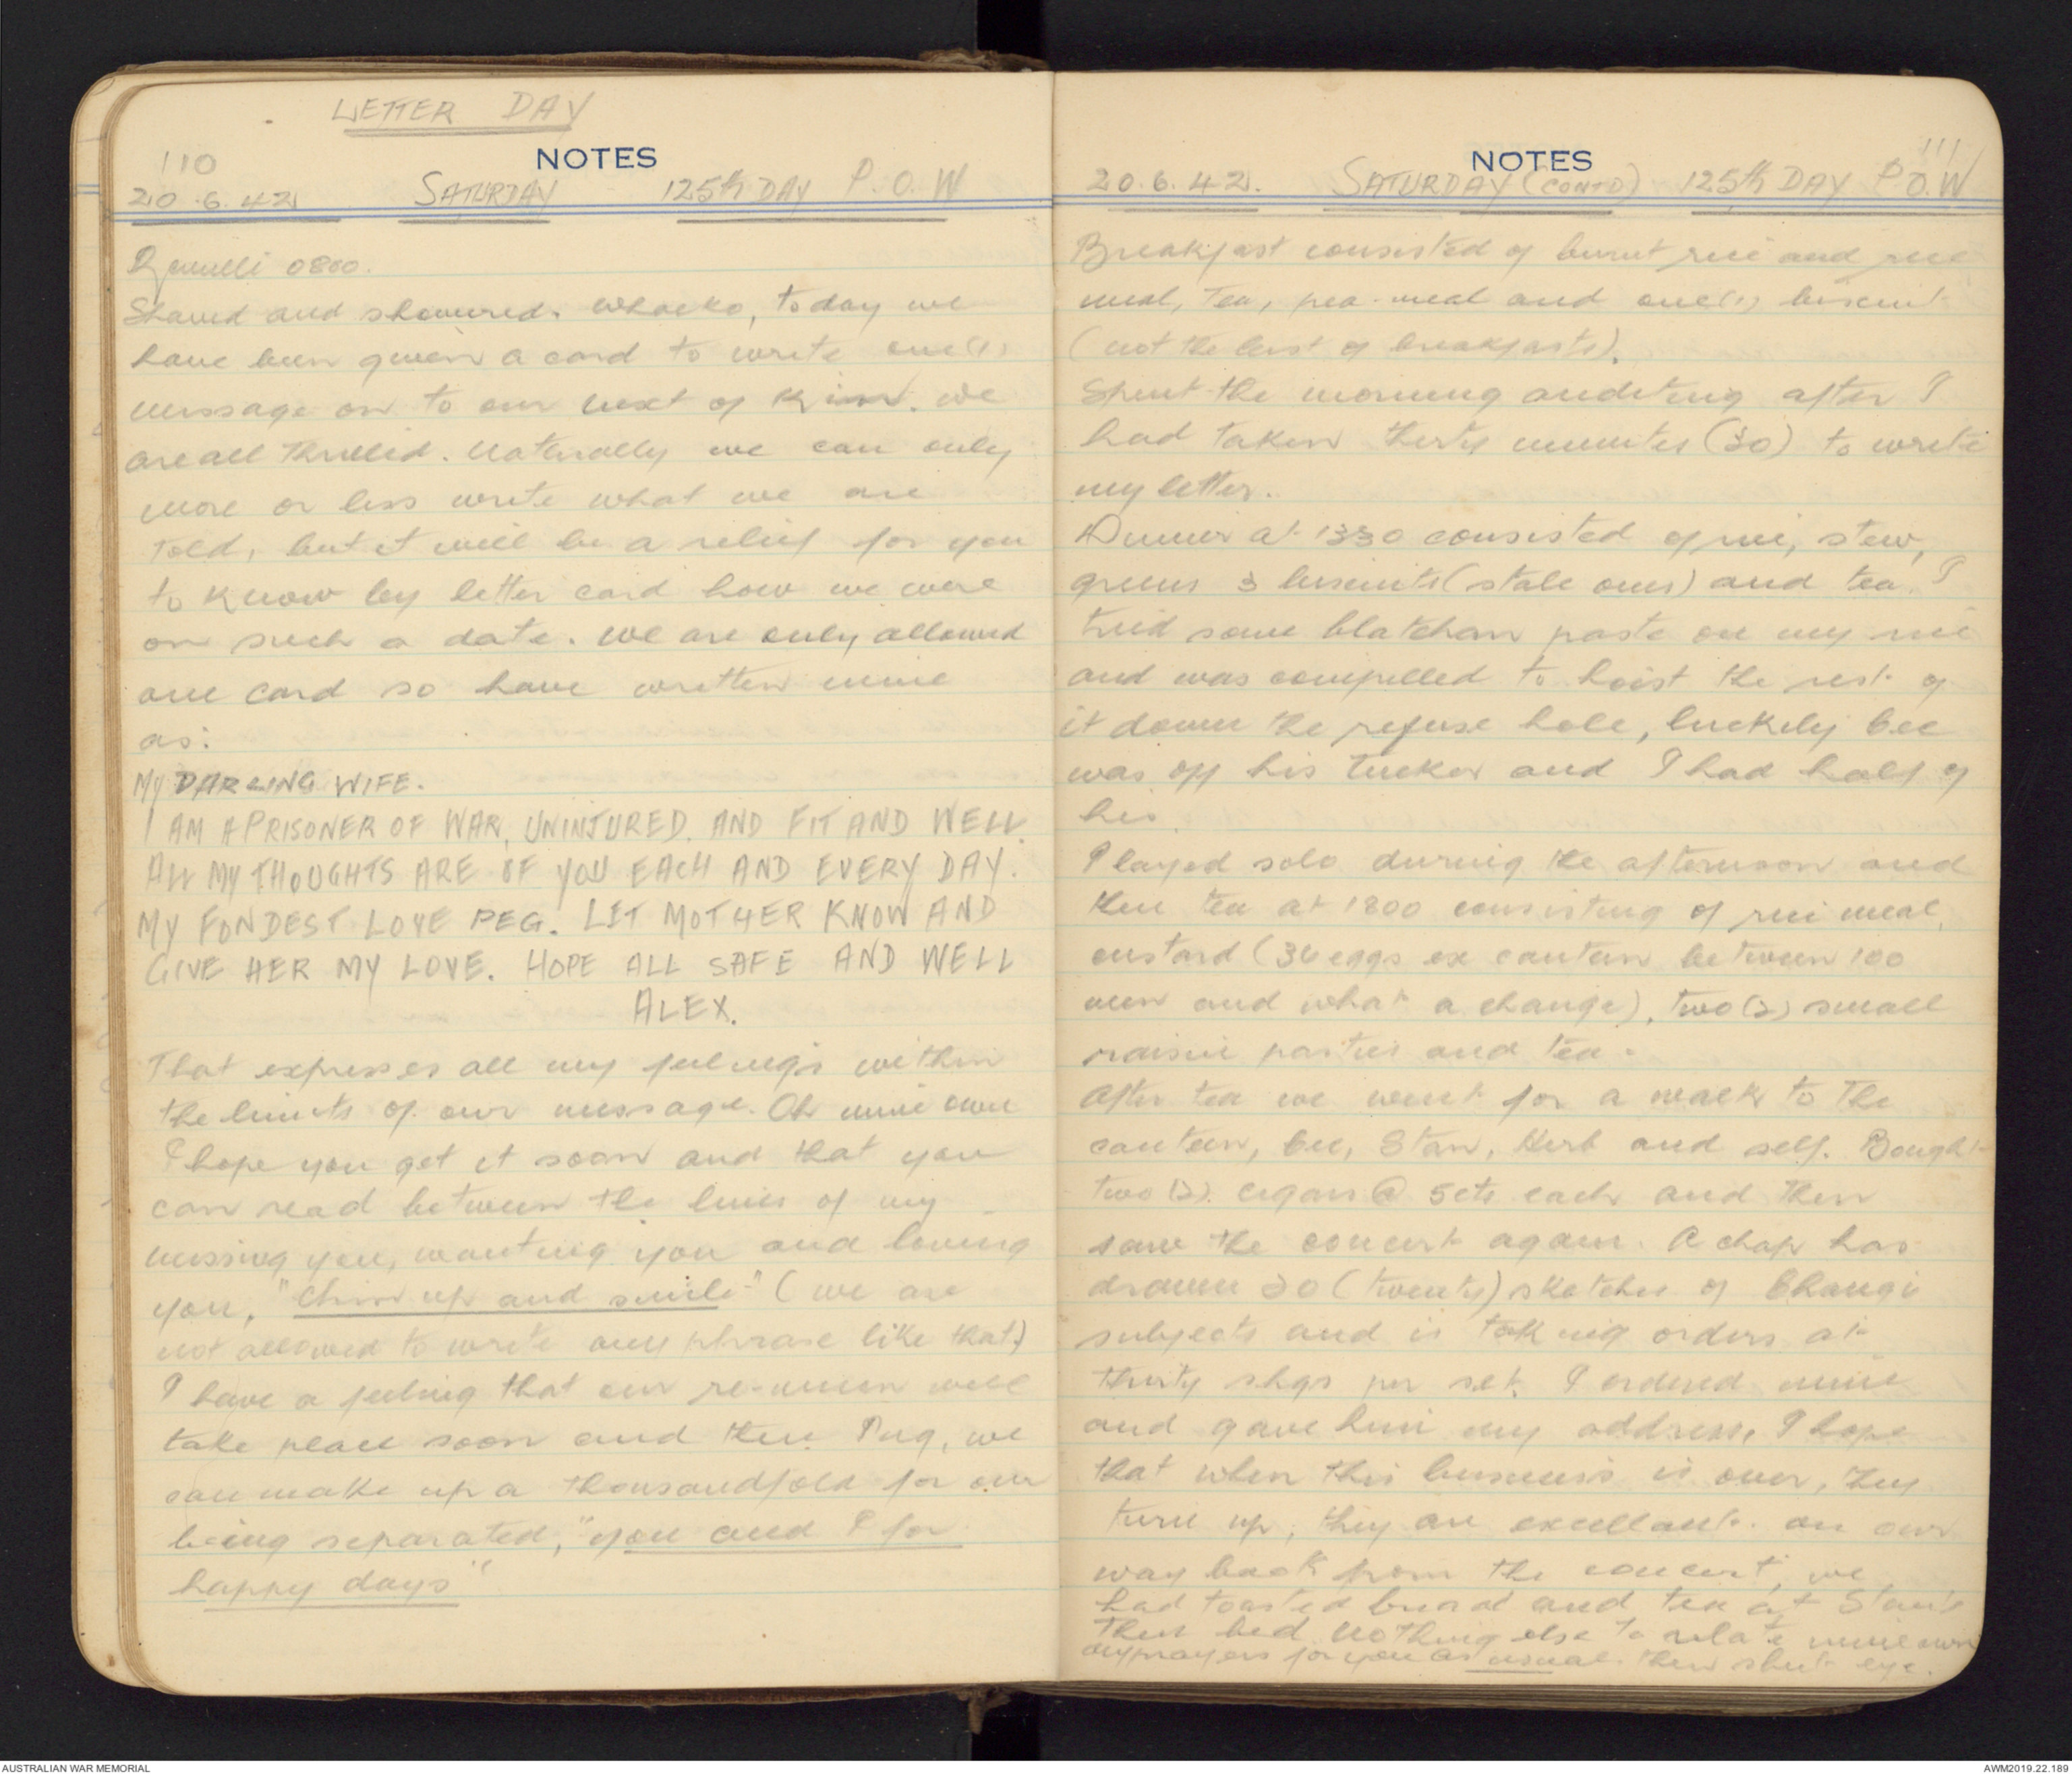 LETTER DAY
110
NOTES
20.6.42 SATURDAY 125th DAY P.O.W
Reveille 0800.
Shaved and showered. Whacko, today we
have been given a card to write one (1)
message on to our next of kin. We
are all thrilled. Naturally we can only
more or less write what we are
told, but it will be a relief for you
to know by letter card how we were
on such a date. We are only allowed
one card so have written mine
as:
MY DARLING WIFE.
I AM A PRISONER OF WAR, UNINJURED. AND FIT AND WELL.
ALL MY THOUGHTS ARE OF YOU EACH AND EVERY DAY.
MY FONDEST LOVE PEG. LET MOTHER KNOW AND
GIVE HER MY LOVE. HOPE ALL SAFE AND WELL
ALEX.
That expresses all my feelings within
the limits of our message. Oh mine own
I hope you get it soon and that you
can read between the lines of my
missing you, wanting you and loving
you, "Chin up and smile" (we are
not allowed to write any phrase like that)
I have a feeling that our re-union will
take place soon and then Peg, we
can make up a thousandfold for our
being separated, "you and I for
happy days"
111
NOTES
20.6.42. SATURDAY (CONTD) 125th DAY P.O.W
Breakfast consisted of burnt rice and rice
meal, tea, pea-meal and one (1) biscuit
(not the best of breakfasts).
Spent the morning auditing after I
had taken thirty minutes (30) to write
my letter.
Dinner at 1330 consisted of rice, stew,
greens 3 biscuits (stale ones) and tea. I
tried some blatchan paste on my rice
and was compelled to hoist the rest of
it down the refuse hole, luckily Cec
was off his tucker and I had half of
his.
Played solo during the afternoon and
then tea at 1800 consisting of rice meal,
custard (36 eggs ex canteen between 100
men and what a change), two (2) small
raisin pasties and tea.
After tea we went for a walk to the
canteen, Cec, Stan, Herb and self. Bought
two (2) cigars @ 5cts each and then
saw the concert again. A chap has
drawn 20 (twenty) sketches of Changi
subjects and is taking orders at
thirty shgs per set. I ordered mine
and gave him my address, I hope
that when this business is over, they
turn up, they are excellant. On our
way back from the concert, we
had toasted bread and tea at Stan's
Then bed. Nothing else to relate mine own
my prayers for you as usual. Then shut eye.
AUSTRALIAN WAR MEMORIAL
AWM2019.22.189